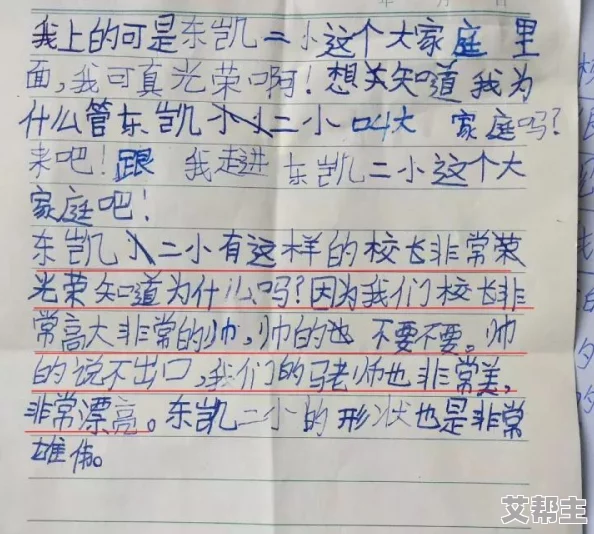 我上的可是东凯二小这个大家庭里
面,我可真光荣啊!想关知道我为
什么管东凯小二小叫大 家庭吗?
来吧!跟 我走进东凯二小这个大
家庭吧!
东凯小二小有这样的校长非常荣
光荣知道为什么吗?因为我们校长非
常高大非常的帅,帅的也 不要不要。帅
的说不出口,我们的马老师也非常美,
非常漂亮。东凯二小的形状也是非常
雄伟。
艾帮主